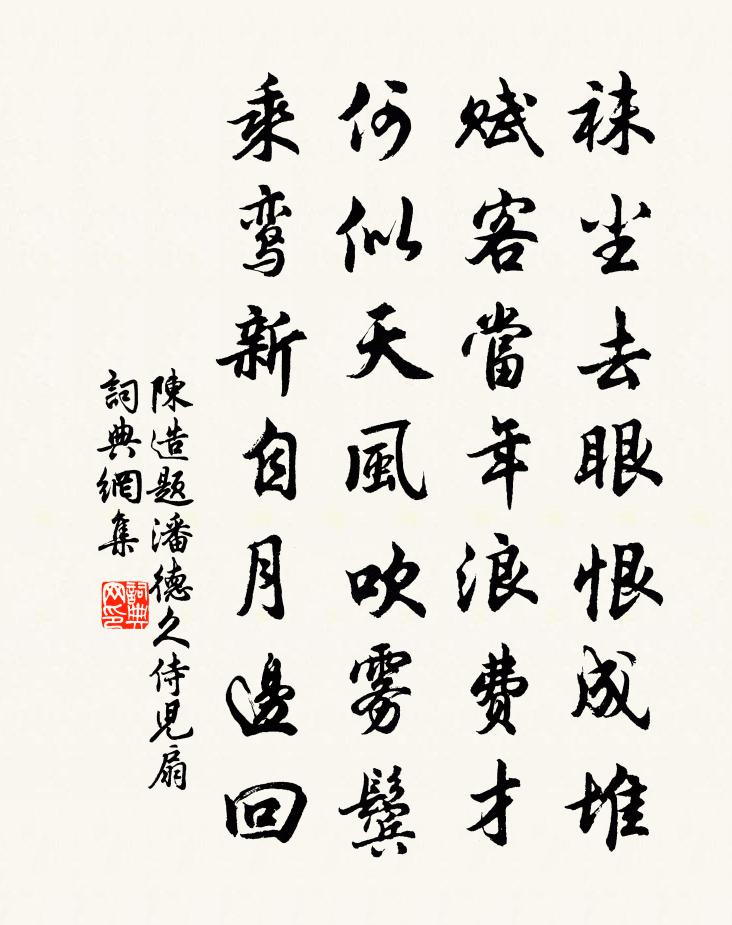 袜尘去眼恨成堆
赋客當年浪费才
何似天風吹雾鬓
乘鸾新自月邊回
陳造题潘德久侍児扇
詞典網集
詞典网印